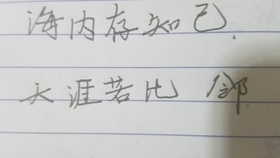 海内存知己.
天涯若比邻.